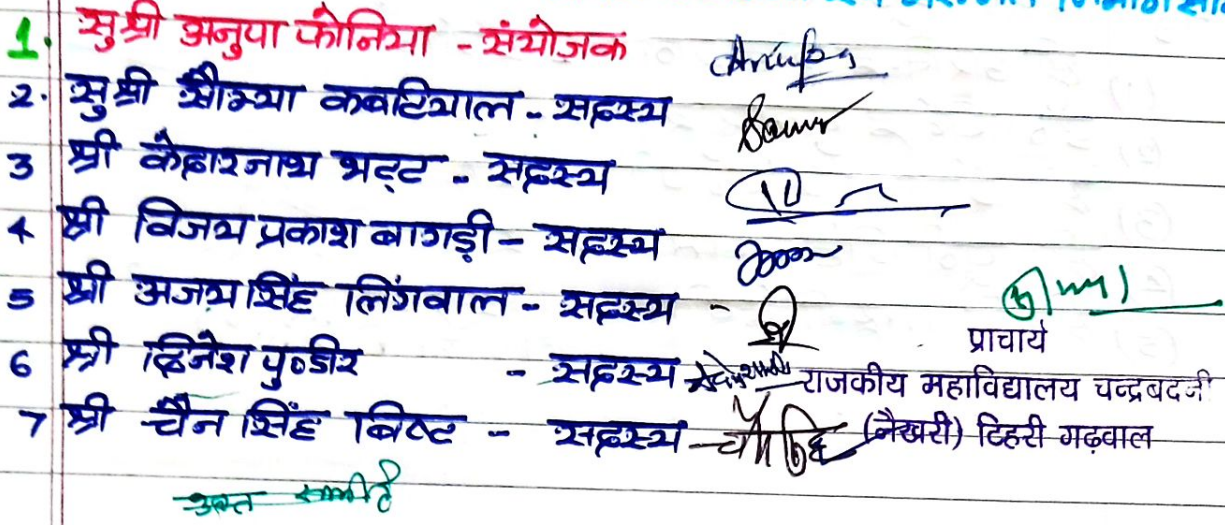 1. सुश्री अनुपा फोनिया - संयोजक
2. सुश्री सौम्या कबटियाल - सदस्य
3 श्री केदारनाथ भट्ट - सदस्य
4 श्री विजय प्रकाश बागड़ी - सदस्य
5 श्री अजय सिंह लिंगवाल - सदस्य -
6 श्री दिनेश पुण्डीर - सदस्य
7 श्री चैन सिंह बिष्ट - सदस्य
प्राचार्य
राजकीय महाविद्यालय चन्द्रबदनी
(नैखरी) टिहरी गढ़वाल